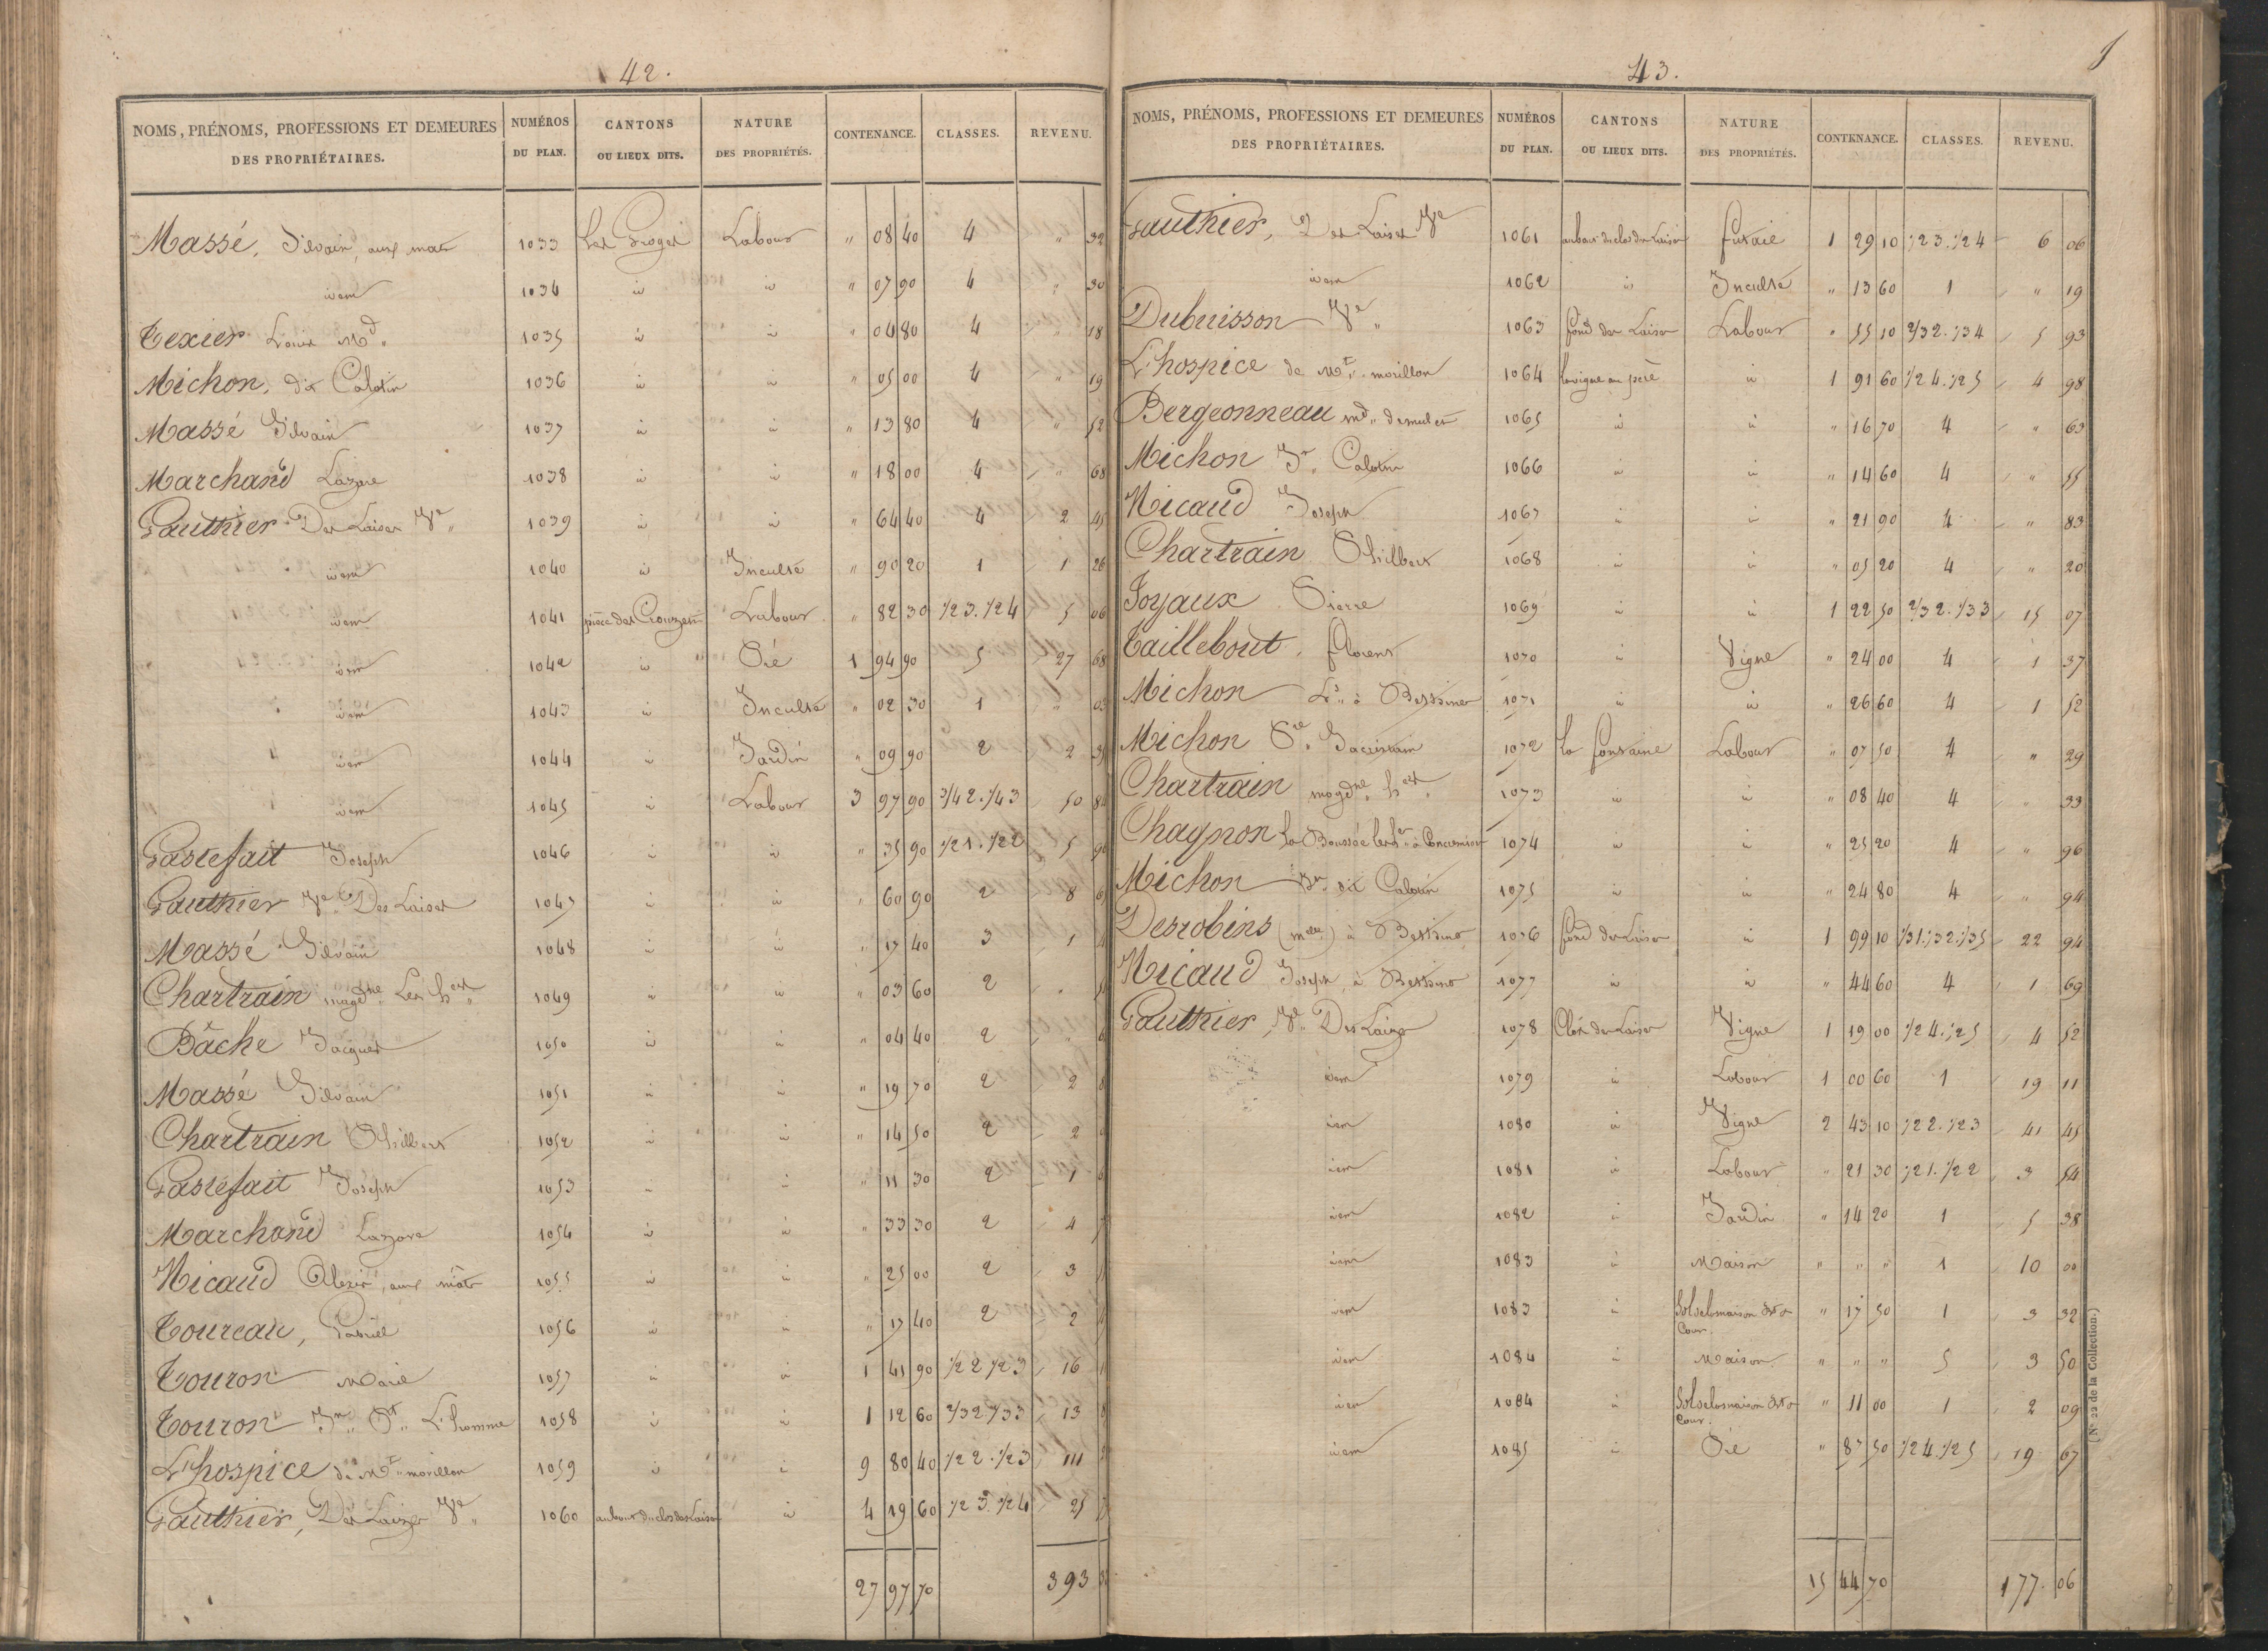 42.
NOMS, PRÉNOMS, PROFESSIONS ET DEMEURES DES PROPRIÉTAIRES. NUMÉROS DU PLAN. CANTONS OU LIEUX DITS. NATURE DES PROPRIÉTÉS. CONTENANCE. CLASSES. REVENU.
Massé, Silvain, aux mats 1033 Les Labour " 08 40 4 " 32
idem 1034 id id " 07 90 4 " 30
Texier Louis Md. 1035 id id " 04 80 4 " 18
Michon, dit Calotin 1036 id id " 05 00 4 " 19
Massé Silvain 1037 id id " 13 80 4 " 52
Marchand Lazare 1038 id id " 18 00 4 " 68
Gauthier Des Laises Ve " 1039 id id " 64 40 4 2 45
idem 1040 id Inculte " 90 20 1 1 26
idem 1041 pièce des Labour " 82 30 1/2 3. 1/2 4 5 06
idem 1042 id Pré 1 94 90 5 27 68
idem 1043 id Inculte " 02 30 1 " 03
idem 1044 id Jardin " 09 90 2 2
idem 1045 id Labour 3 97 90 3/4 2. 1/4 3 50
Pastefait Joseph 1046 id id " 35 90 1/2 1. 1/2 2 5
Gauthier Ve Des Laises 1047 id id " 60 90 2 8
Massé Silvain 1048 id id " 17 40 3 1
Chartrain magdne Les hers 1049 id id " 03 60 2 "
Bâche Jacques 1050 id id " 04 40 2 "
Massé Silvain 1051 id id " 19 70 2 2
Chartrain Philbert 1052 id id " 14 50 2 2
Pastefait Joseph 1053 id id " 11 30 2 1
Marchand Lazare 1054 id id " 33 30 2 4
Nicaud Alexis, aux mats 1055 id id " 25 00 2 3
Toureau, 1056 id id " 17 40 2 2
Touron Marie 1057 id id 1 41 90 1/2 2 1/2 3 16
Touron Jn. Pt. L'homme 1058 id id 1 12 60 2/3 2 1/3 3 13
L'hospice de Mt. morillon 1059 id id 9 80 40 1/2 2. 1/2 3 111
Gauthier, Des Laizes Ve " 1060 au bout du clos des Laises id 4 19 60 1/2 3. 1/2 4 25
27 97 70 393
43.
NOMS, PRÉNOMS, PROFESSIONS ET DEMEURES DES PROPRIÉTAIRES. NUMÉROS DU PLAN. CANTONS OU LIEUX DITS. NATURE DES PROPRIÉTÉS. CONTENANCE. CLASSES. REVENU.
Gauthier, Des Laises Ve 1061 au bout du clos des Laises futaie 1 29 10 1/2 3. 1/2 4 6 06
idem 1062 id Inculte " 13 60 1 " 19
Dubuisson Ve " 1063 fond des Laises Labour " 55 10 2/3 2. 1/3 4 5 93
L'hospice de Mt. morillon 1064 la vigne au père id 1 91 60 1/2 4. 1/2 5 4 98
Bergeonneau md. de mules 1065 id id " 16 70 4 " 63
Michon Jn. Calotin 1066 id id " 14 60 4 " 55
Nicaud Joseph 1067 id id " 21 90 4 " 83
Chartrain Philbert 1068 id id " 05 20 4 " 20
Joyaux Pierre 1069 id id 1 22 50 2/3 2. 1/3 3 15 07
Taillebout, florent 1070 id Vigne " 24 00 4 1 37
Michon Ls. à Bessines 1071 id id " 26 60 4 1 52
Michon Pre. Sacristain 1072 la fontaine Labour " 07 50 4 " 29
Chartrain magdne. hers. 1073 id id " 08 40 4 " 33
Chagnon la à Concremiers 1074 id id " 25 20 4 " 96
Michon Jn. dit Calotin 1075 id id " 24 80 4 " 94
Desrobins (melle) à Bessines 1076 fond des Laises id 1 99 10 1/3 1. 1/3 2. 1/3 5 22 94
Nicaud Joseph, à Bessines 1077 id id " 44 60 4 1 69
Gauthier, Ve. Des Laizes 1078 Clos des Laises Vigne 1 19 00 1/2 4. 1/2 5 4 52
idem 1079 id Labour 1 00 60 1 19 11
idem 1080 id Vigne 2 43 10 1/2 2. 1/2 3 41 45
idem 1081 id Labour " 21 30 1/2 1. 1/2 2 3 54
idem 1082 id Jardin " 14 20 1 5 38
idem 1083 id Maison " " " 1 10 00
idem 1083 id Sol de la maison Bts & Cour. " 17 50 1 3 32
idem 1084 id Maison. " " " 5 3 50
idem 1084 id Sol de la maison Bts & Cour. " 11 00 1 2 09
idem 1085 id Pré " 87 50 1/2 4. 1/2 5 19 67
15 44 70 177 06
(N° 22 de la Collection.)